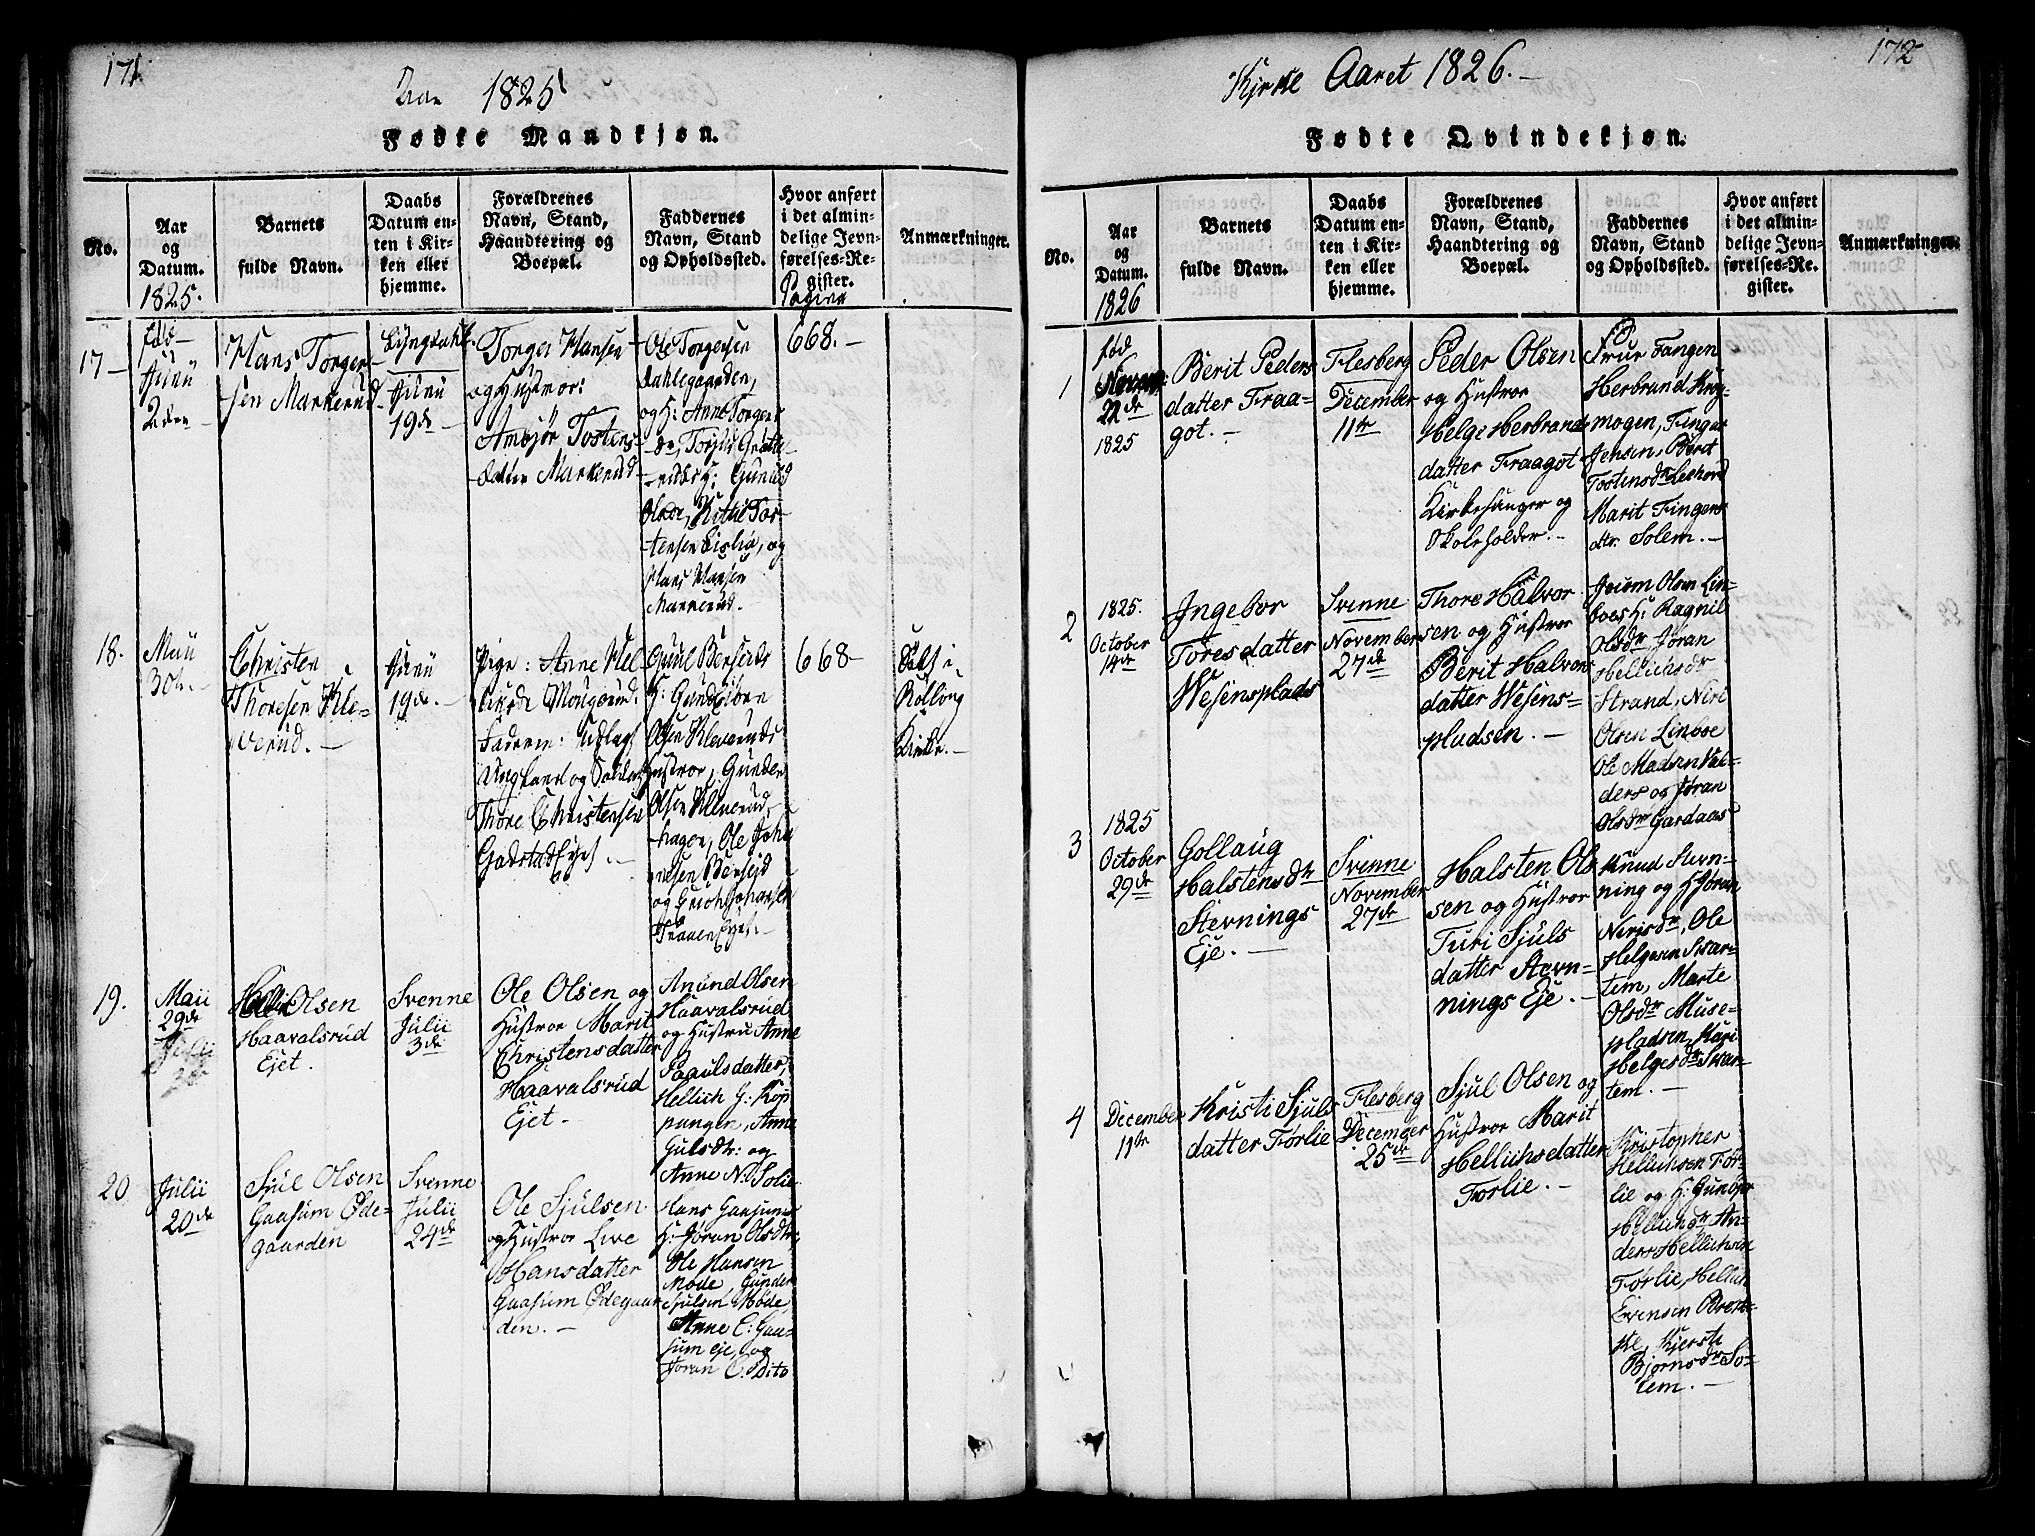 171
1825
Fødte Mandkjøn.
No.
Aar
og
Datum.
1825.
Barnets
fulde Navn.
Daabs
Datum en-
ten i Kir-
ken eller
hjemme.
Forældrenes
Navn, Stand,
Haandtering og
Boepæl.
Faddernes
Navn, Stand
og Opholdssted.
Hvor anført
i det almin-
delige Jevn-
førelses-Re-
gister.
Pagina
Anmærkninger.
17
fød
Junii
2den
Hans Torger-
sen Markerud
Junii
19de
Torger Hansen
og Hustroe:
Tostens-
datter Markerud
Ole Torgersen
Dahlegaarden,
og H: Anne Torgers
Olsdr, Kittil Tor-
stensen
og
Hans Hansen
Markerud.
668.-
18.
Maii
30te.-
Christen
Thoresen Kle-
verud.-
Junii
19de.-
Pige: Anne
Faderen: Udlagt
Ungkarl og Soldat
Thore Christensen
H:
Olsen Kleverud
Hustroe, Gunder
Olsen Kleverud-
hagen, Ole Joha
nesen
og
668-
Døbt i
Rollong
Kirke.-
19.
Maii
29de
Olsen
Haavalsrud
Ejet.
Svenne
Julii
3de
Ole Olsen og
Hustroe Marit
Christensdatter
Haavalsrud
Ejet.-
Anund Olsen
Haavalsrud
og Hustru Anne
Paaulsdatter,
Hellich G: Kop
pangen, Anne
Gulsdtr: og
Anne N: Solie
20
Julii
20de
Sjul Olsen
Gaasum Øde-
gaarden
Svenne
Julii
24de
Ole Sjulsen
og Hustroe Live
Hansdatter
Gaasum Ødegaar
den.-
Hans Gaasum
H: Jøran Olsdtr,
Ole Hansen
Møde Gunder
Sjulsen Møde,
Anne C: Gaa-
sum eje, og
Joran C: Dito
172
Kirke Aaret 1826.-
Fødte Qvindekjøn.
No.
Aar
og
Datum.
1826
Barnets
fulde Navn.
Daabs
Datum en-
ten i Kir-
ken eller
hjemme.
Forældrenes
Navn, Stand,
Haandtering og
Boepæl.
Faddernes
Navn, Stand
og Opholdssted.
Hvor anført
i det almin-
delige Jevn-
førelses-Re-
gister.
Anmærkninger.
1
fød
22de
1825
Berit Peders
datter Fraa-
got.-
Flesberg
December
11te
Peder Olsen
og Hustroe
Helge Herbrands
datter Fraagot
Kirkesanger og
Skoleholder.-
Fangen
Herbrand Krog-
mogen, Fingar
Jensen, Berit
Tostensdr
Marit Fingers
dtr. Solem.-
2
1825.
October
14de
Ingebor
Toresdatter
Wesensplads
Svenne
November
27de
Thore Halvor
sen og Hustroe
Berit Halvors
datter Wesens-
pladsen.-
Olsen Lin-
boe H: Ragnil
Olsdr Jøran
Hellichsdr
Strand, Neri
Olsen Linboe
Ole Madsen Val-
ders og Jøran
Olsdr Gardaas
3
1825
October
29de
Gollaug
Halstensdr
Stevnings
Eje.-
Svenne
November
27de
Halsten Ols
sen og Hustroe
Turi Sjuls
datter Stevn-
nings Eje.-
Knud Stevn-
ning og H: Jøran
Nerisdr, Ole
Helgesen Svar-
tem, Marte
Olsdr Muse-
pladsen, Kari
Helgesdr Svar-
tem.-
4
December
11te
Kristi Sjuls
datter Førlie
Flesberg
December
25de
Sjul Olsen og
Hustroe Marit
Hellichsdatter
Førlie.-
Kristopher
Hellichsen Før-
lie og H: Gunbjør
An-
ders Hellichsen
Førlie, Hellich
Evensen
Kjersti
Bjørnsdr So-
lem.-